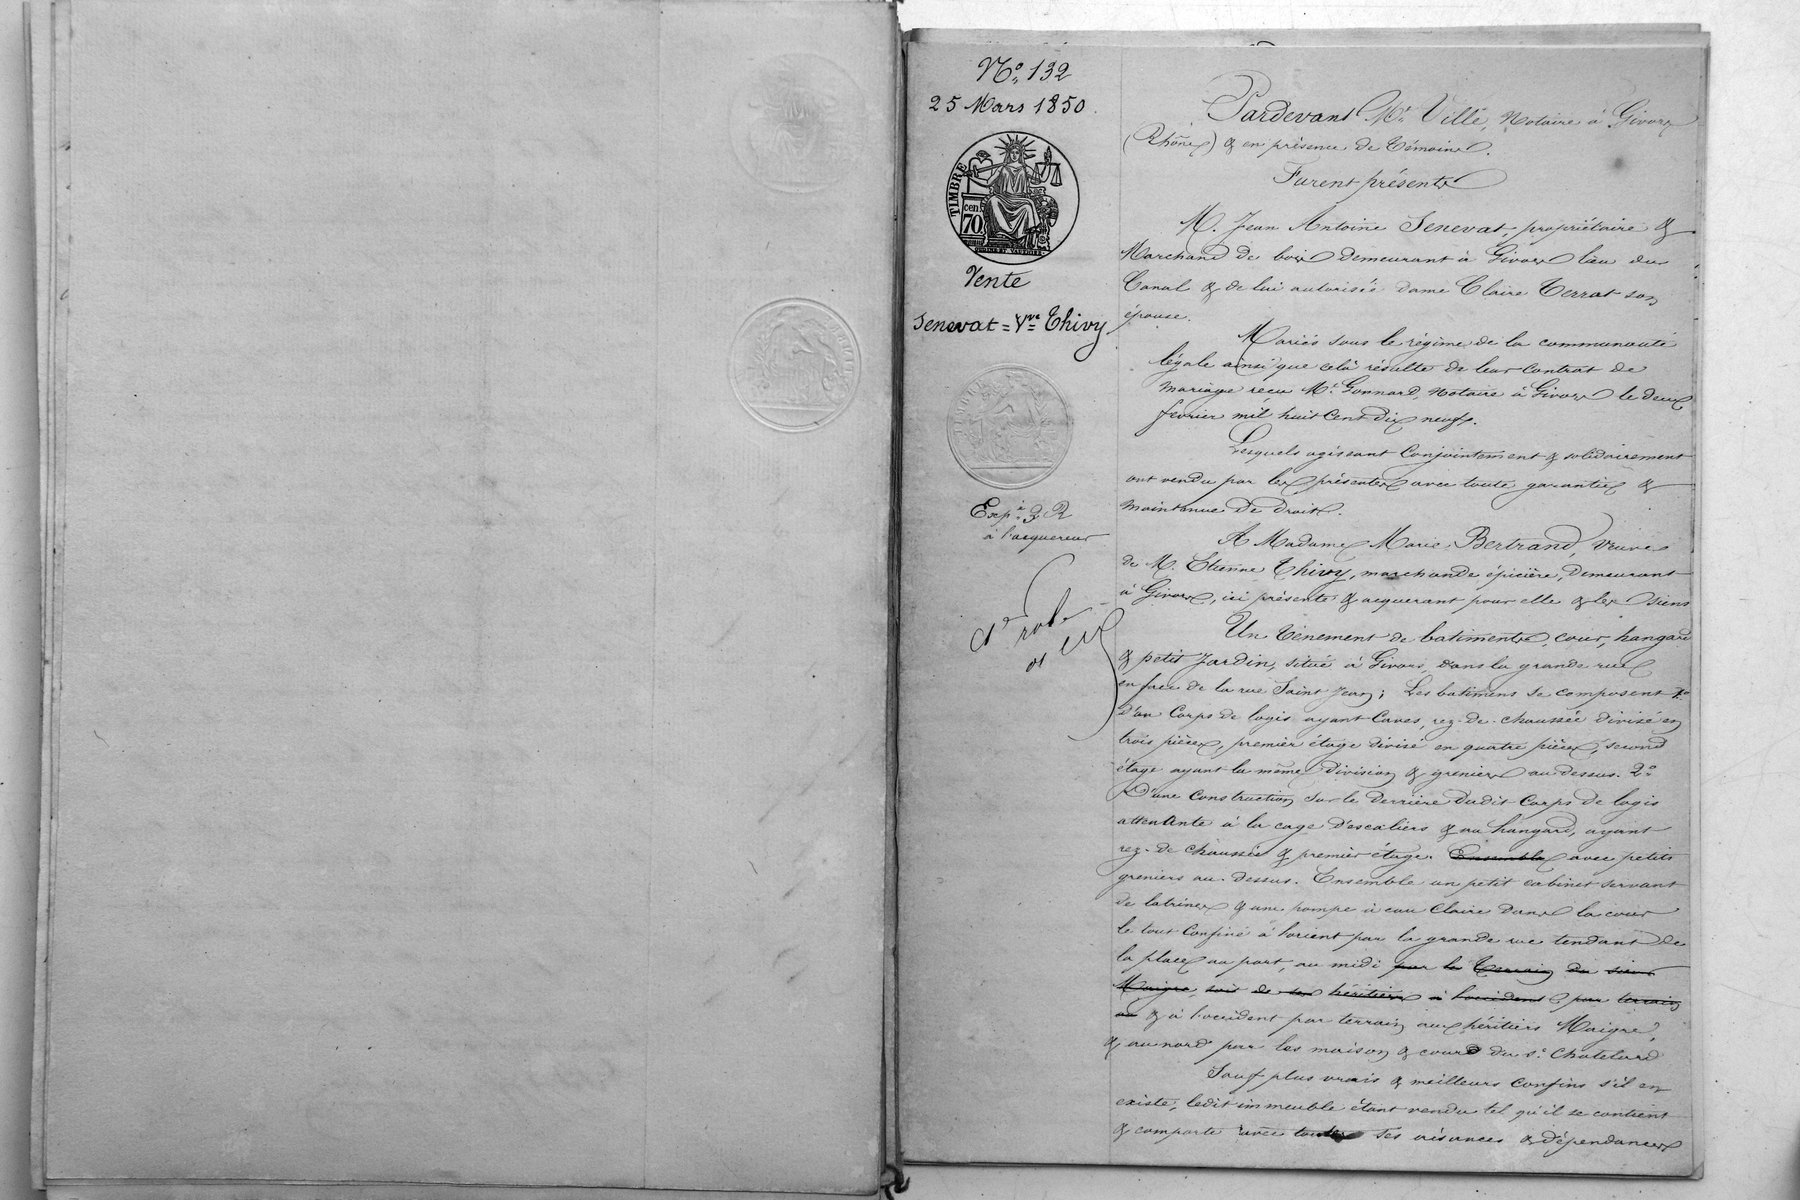 No. 132
25 Mars 1850.
TIMBRE
cen.
70.
Vente
Senevat = Vve Thivy
Expée 3 R
à l'acquereur
Pardevant Me Ville, Notaire à Givors
(Rhône) & en présence de témoins.
Furent présents
M. Jean Antoine Senevat, propriétaire &
Marchand de bois demeurant à Givors lieu du
Canal & de lui autorisée dame Claire Terrat son
épouse.
Mariés sous le régime de la communauté
légale ainsi que cela résulte de leur contrat de
mariage reçu Me Gonnard, notaire à Givors le deux
fevrier mil huit cent dix neuf.
Lesquels agissant conjointement & solidairement
ont vendu par les présentes avec toute garantie &
maintenue de droit.
A Madame Marie Bertrand, Veuve
de M. Etienne Thivy, marchande épicière, demeurant
à Givors, ici présente & acquerant pour elle & les siens
Un tènement de batiments, cour, hangard
& petit Jardin, situé à Givors, dans la grande rue
en face de la rue Saint Jean; Les batimens se composent 1o
d'un Corps de logis ayant Caves, rez-de-chaussée divisé en
trois pièces, premier étage divisé en quatre pièces, second
étage ayant la même division & greniers au dessus. 2o
D'une construction sur le derrière dudit Corps de logis
attenante à la cage d'escaliers & au hangard, ayant
rez-de chaussée & premier étage. Ensemble avec petits
greniers au-dessus. Ensemble un petit cabinet servant
de latrines & une pompe à eau claire dans la cour
le tout confiné à l'orient par la grande rue tendant de
la place au port, au midi par le terrain du sieur
Maigre, soit de ses héritiers à l'occident, par terrain
au & à l'occident par terrain aux héritiers Maigre,
& au nord par les maison & cour du sr Chatelard
Sauf plus vrais & meilleurs confins s'il en
existe, ledit immeuble étant vendu tel qu'il se contient
& comporte avec toutes ses aisances & dépendances